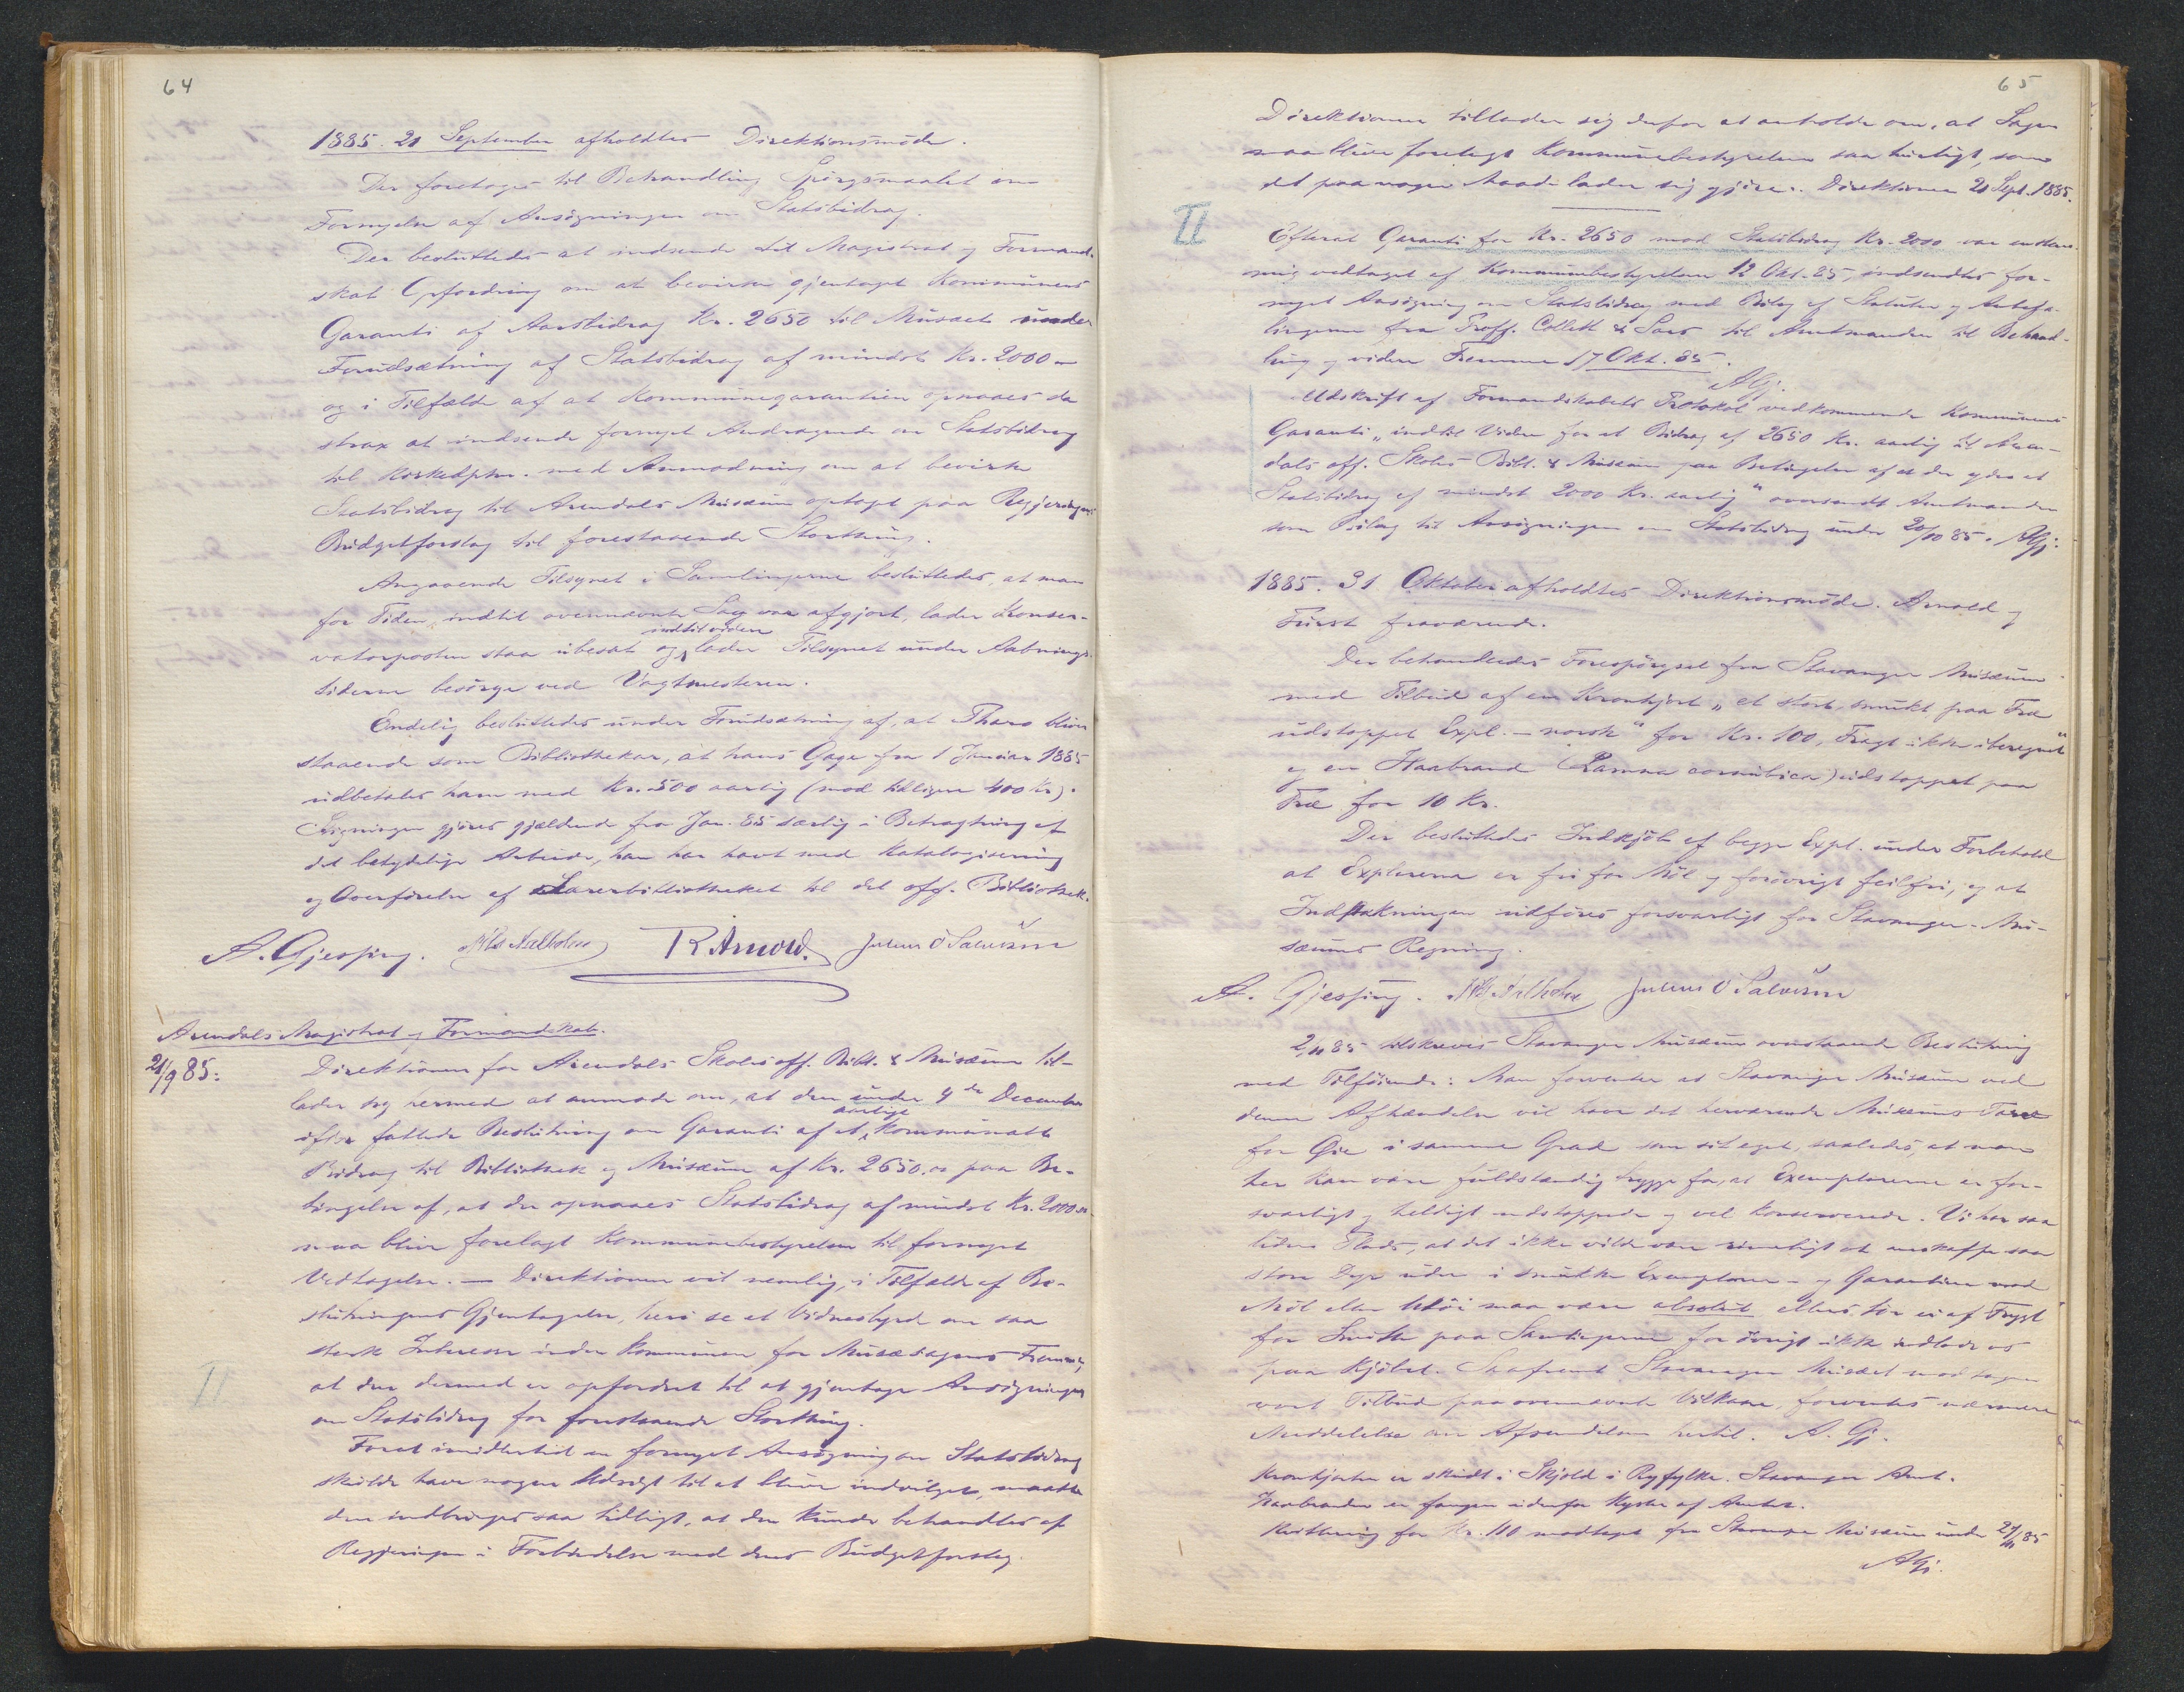 64
1885. 21 September afholdtes Direktionsmøde.
Der foretoges til Behandling Spørgsmaalet om
Fornyelse af Ansøgningen om Statsbidrag.
Der besluttedes at indsende til Magistrat og Formand-
skab Opfordring om at bevirke gjentaget Kommunens
Garanti af Aarsbidrag Kr. 2650 til Musæet under
Forudsætning af Statsbidrag af mindst Kr. 2000 –
og i Tilfælde af at Kommunegarantien opnaaes da
strax at indsende fornyet Andragende om Statsbidrag
til Kirkedptm. med Anmodning om at bevirke
Statsbidrag til Arendals Musæum optaget paa Regjeringens
Budgetforslag til forestaaende Storthing.
Angaaende Tilsynet i Samlingerne besluttedes, at man
for Tiden, indtil ovennævnte Sag var afgjort, lader Konser-
vatorposten staa ubesat og indtil videre lader Tilsynet under Aabnings-
tiderne besørge ved Vagtmesteren.
Endelig besluttedes under Forudsætning af, at Thars bliver
staaende som Bibliothekar, at hans Gage fra 1 Januar 1885
udbetales ham med Kr. 500 aarlig (mod tidligere 400 Kr).
gjøres gjældende fra Jan. 85 særlig i Betragtning af
det betydelige Arbeide, han har havt med Katalogisering
og Overførelse af Læsebibliotheket til det off. Bibliothek.
A. Gjessing. Nils Aalholm R Arnold. Julius O Salvesen
Arendals Magistrat og Formandskab.
21/9 85:
Direktionen for Arendals Skoles off. Bibl. & Musæum til-
lader sig hermed at anmode om, at den under 4de December
ifjor fattede Beslutning om Garanti af et aarligt kommunalt
Bidrag til Bibliothek og Musæum af Kr. 2650.00 paa Be-
tingelse af, at der opnaaes Statsbidrag af mindst Kr. 2000.00
maa blive forelagt Kommunebestyrelsen til fornyet
Vedtagelse. — Direktionen vil nemlig, i Tilfælde af Be-
slutningens Gjentagelse, heri se et Vidnesbyrd om saa
sterk Interesse inden Kommunen for Musæsagens Fremme,
at den dermed er opfordret til at gjentage Ansøgningen
om Statsbidrag for forestaaende Storthing.
II
Foret imidlertid en fornyet Ansøgning om Statsbidrag
skulde have nogen Udsigt til at blive indvilget, maatte
den indbringes saa tidligt, at den kunde behandles af
Regjeringen i Forbindelse med dens Budgetforslag.
65
Direktionen tillader sig derfor at anholde om, at Sagen
maa blive forelagt Kommunebestyrelsen saa hurtigt, som
det paa nogen Maade lader sig gjøre. Direktionen 21 Sept. 1885.
II
Efterat Garanti for Kr. 2650 mod Statsbidrag Kr. 2000 var enstem-
mig vedtaget af Kommunebestyrelsen 12 Okt. 85, indsendtes for-
nyet Ansøgning om Statsbidrag med Bilag af Statuter og Anbefa-
lingerne fra Proff. Collett & Sars til Amtmanden til Behand-
ling og videre Fremme 17 Okt. 85.
AGj.
Udskrift af Formandskabets Protokol vedkommende Kommunens
Garanti „indtil Videre for et Bidrag af 2650 Kr. aarlig til Aren-
dals off. Skoles Bibl. & Musæum paa Betingelse af at der ydes et
Statsbidrag af mindst 2000 Kr. aarlig“ oversendt Amtmanden
som Bilag til Ansøgningen om Statsbidrag under 20/10 85. AGj.
1885. 31 Oktober afholdtes Direktionsmøde. Arnold og
Furst fraværende.
Der behandledes Forespørgsel fra Stavanger Musæum
med Tilbud af en Kronhjort „et stort, smukt paa Træ
udstoppet Expl. – norsk“ for Kr. 100, Fragt ikke iberegnet“
og en Haabrand (Lamna cornubica) udstoppet paa
Træ for 10 Kr.
Der besluttedes Indkjøb af begge Expl. under Forbehold
at Explarerne er fri for Møl og forøvrigt feilfri, og at
Indpakningen udføres forsvarligt for Stavanger-Mu-
sæums Regning.
A. Gjessing. Nils Aalholm Julius O Salvesen
2/11 85 tilskreves Stavanger Musæum ovenstaaende Beslutning
med Tilføiende: Man forventer at Stavanger Musæum ved
denne Afhændelse vil have det herværende Musæums Tarv
for Øie i samme Grad som sit eget, saaledes, at man
her kan være fuldstændig trygge for, at Exemplarerne er for-
svarligt og heldigt udstoppede og vel konserverede. Vi har saa
liden Plads, at det ikke vilde være rimeligt at anskaffe saa
store Dyr uden i smukke Exemplarer – og Garantien mod
Møl eller Utøi maa være absolut ellers tør vi af Frygt
for Smitte paa Samlingerne for øvrigt ikke indlade os
paa Kjøbet. Saafremt Stavanger Musæet modtager
vort Tilbud paa ovennævnte Vilkaar, forventes nærmere
Meddelelse om Afsendelsen hertil. A. Gj.
Kronhjorten er skudt i Skjold i Ryfylke. Stavanger Amt.
Haabranden er fangen udenfor Kysten af Amtet.
Kvittering for Kr. 110 modtaget fra Stavanger Musæum under 24/11 85
AGj.